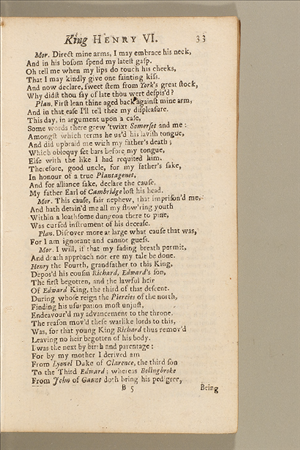 King HENRY VI. 33
Mor. Direct mine arms, I may embrace his neck,
And in his bosom spend my latest gasp.
Oh tell me when my lips do touch his cheeks,
That I may kindly give one fainting kiss.
And now declare, sweet stem from York's great stock,
Why didst thou say of late thou wert despis'd?
Plan. First lean thine aged back against mine arm,
And in that ease I'll tell thee my displeasure.
This day, in argument upon a case,
Some words there grew 'twixt Somerset and me:
Amongst which terms he us'd his lavish tongue,
And did upbraid me with my father's death;
Which obloquy set bars before my tongue,
Else with the like I had requited him.
Therefore, good uncle, for my father's sake,
In honour of a true Plantagenet,
And for alliance sake, declare the cause
My father Earl of Cambridge lost his head.
Mor. This cause, fair nephew, that imprison'd me,
And hath detain'd me all my flow'ring youth
Within a loathsome dungeon there to pine,
Was cursed instrument of his decease.
Plan. Discover more at large what cause that was,
For I am ignorant and cannot guess.
Mor. I will, if that my fading breath permit,
And death approach not ere my tale be done.
Henry the Fourth, grandfather to this King,
Depos'd his cousin Richard, Edward's son,
The first begotten, and the lawful heir
Of Edward King, the third of that descent.
During whose reign the Piercies of the north,
Finding his usurpation most unjust,
Endeavour'd my advancement to the throne.
The reason mov'd these warlike lords to this,
Was, for that young King Richard thus remov'd
Leaving no heir begotten of his body.
I was the next by birth and parentage:
For by my mother I derived am
From Lyonel Duke of Clarence, the third son
To the Third Edward; whereas Bolingbroke
From John of Gaunt doth bring his pedigree,
B 5 Being